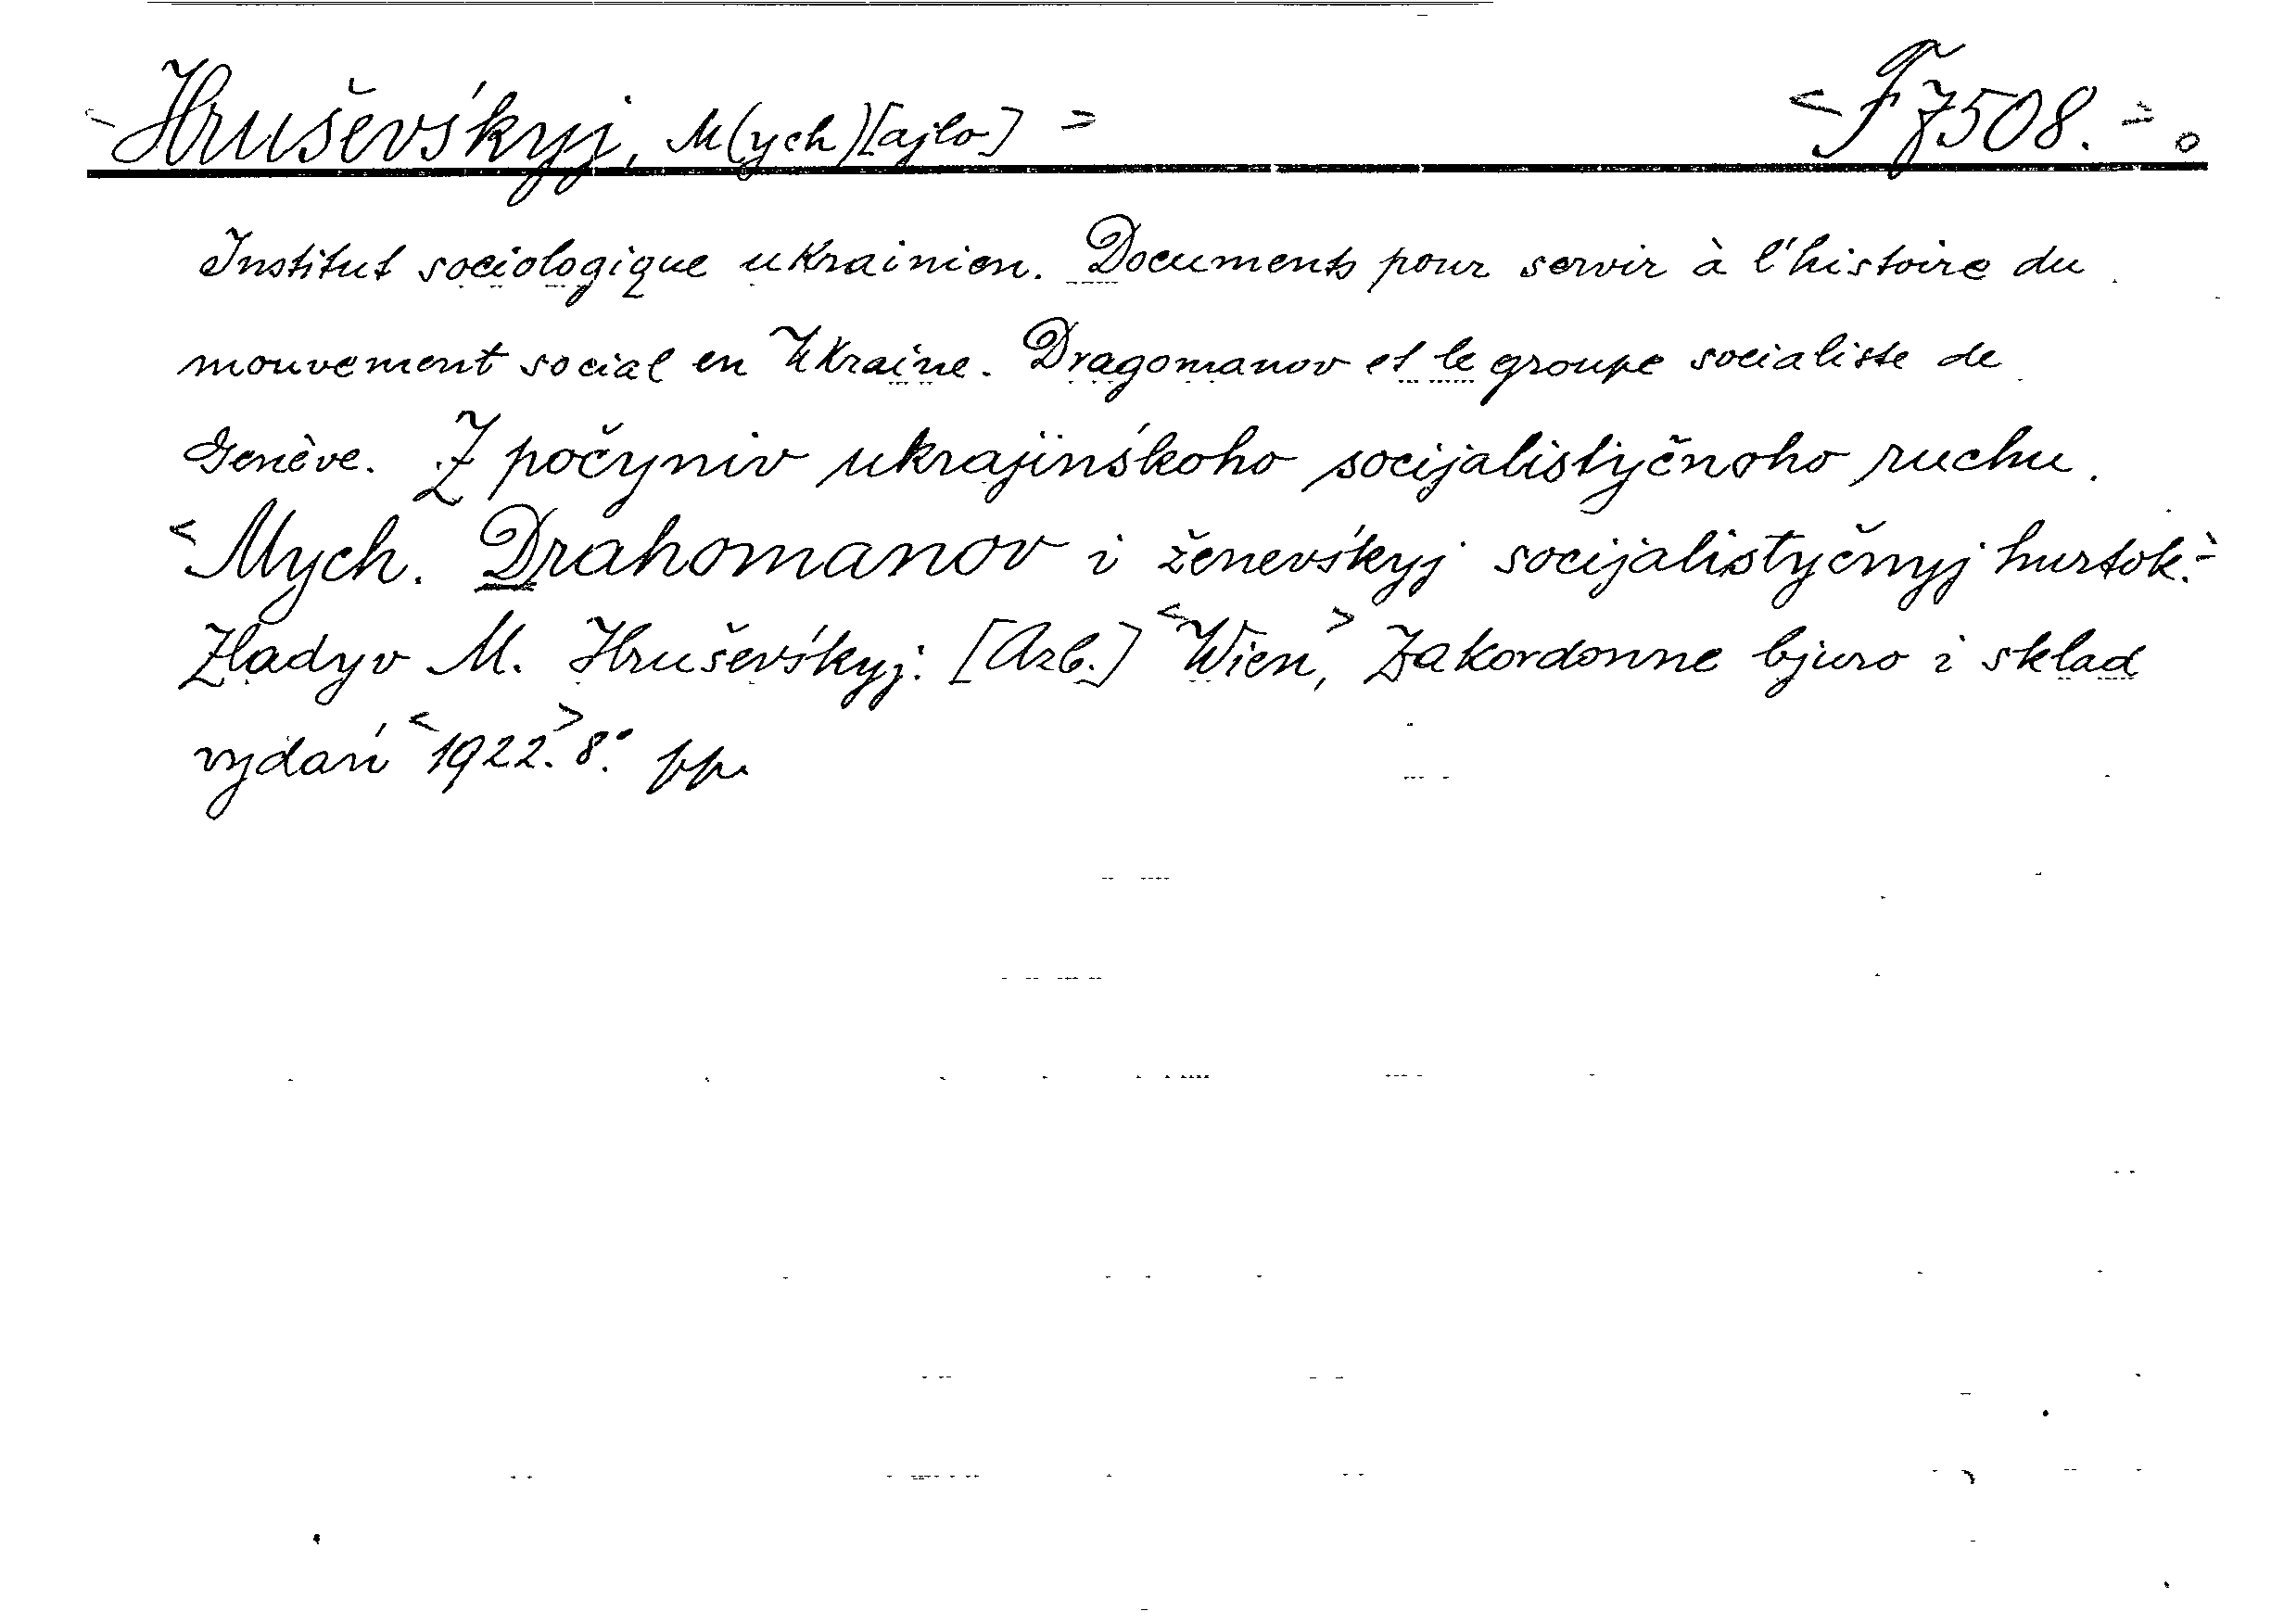 <Hruševśkyj, M(ych)[ajlo]> <F 7508.>
Institut sociologique ukrainien. Documents pour servir à l'histoire du
mouvement social en Ukraine. Dragomanov et le groupe socialiste de
Genève. Z počyniv ukrajinśkoho socijalistyčnoho ruchu.
<Mych. Drahomanov i ženevśkyj socijalistyčnyj hurtok.>
Zladyv M. Hruševśkyj. <Wien>, Zakordonne bjuro i sklad
vydań <1922.> 8.°